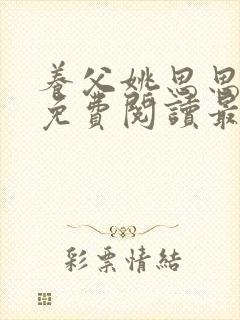 養父姚思思
免費閱讀最
彩票情結